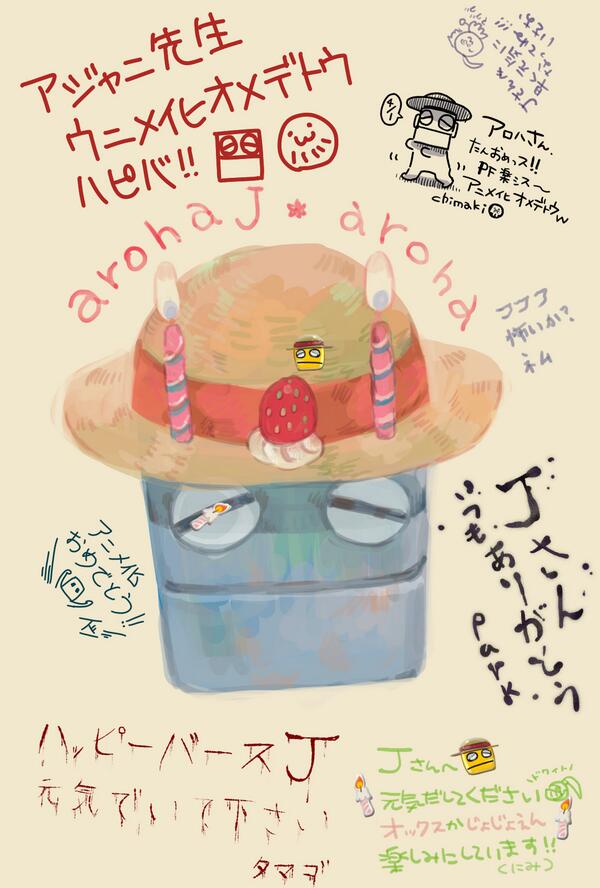 アジャニ先生
ウニメイヒオメデトウ
ハピバ!!
アロハさん、
たんおめっス!!
PF楽シス〜
アニメイヒオメデトウw
chimaki
arohaJ * aroha
ココア
怖いか?
ネム
Jさん
いつもありがとう
park
アニメ化
おめでとう!!
ハッピーバースJ
元気でいて下さい
タマゴ
Jさんへ
元気だしてください
オックスかじょじょえん
楽しみにしています!!
(くにみつ)